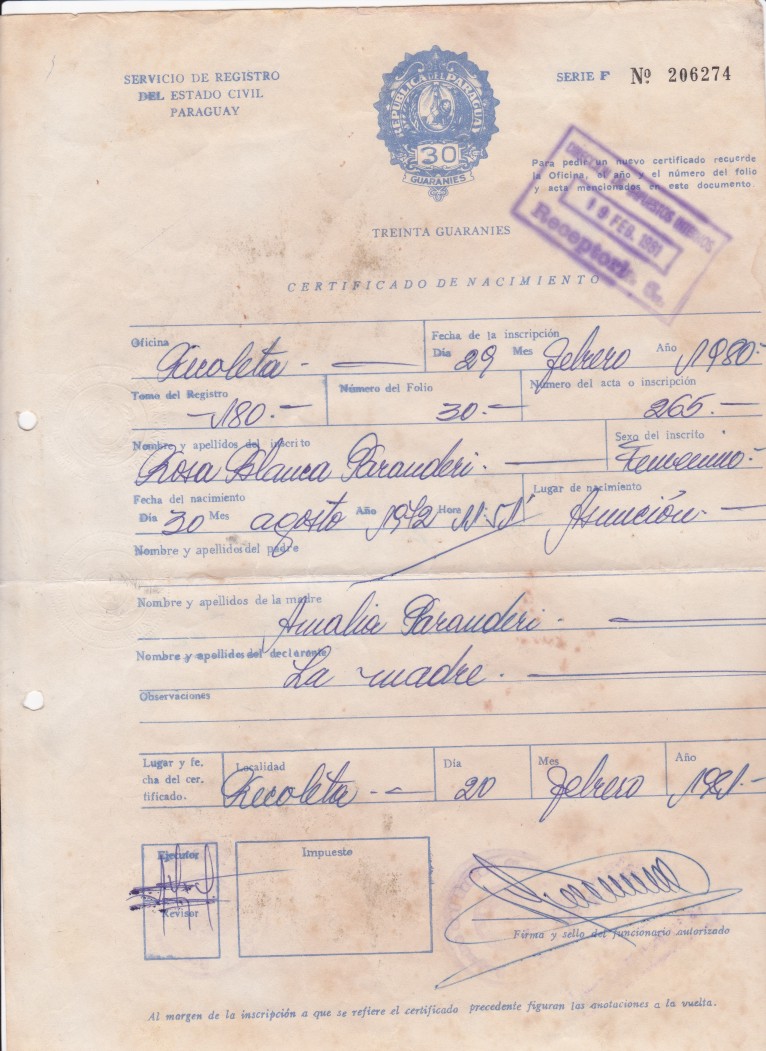 SERVICIO DE REGISTRO
DEL ESTADO CIVIL
PARAGUAY
REPUBLICA DEL PARAGUAY
30
GUARANIES
SERIE F Nº 206274
Para pedir un nuevo certificado recuerde
la Oficina, el año y el número del folio
y acta mencionados en este documento.
IMPUESTOS INTERNOS
19 FEB. 1981
Receptoria
TREINTA GUARANIES
CERTIFICADO DE NACIMIENTO
Oficina Recoleta.-
Fecha de la inscripción
Día 29 Mes febrero Año 1980.-
Tomo del Registro -180.-
Número del Folio 30.-
Número del acta o inscripción 265.-
Nombre y apellidos del inscrito
Rosa Blanca Paranderi.-
Sexo del inscrito
Femenino.-
Fecha del nacimiento
Día 30 Mes agosto Año 1972 Hora
Lugar de nacimiento
Asunción.-
Nombre y apellidos del padre
Nombre y apellidos de la madre
Amalia Paranderi.-
Nombre y apellidos del declarante
La madre.-
Observaciones
Lugar y fe-
cha del cer-
tificado.
Localidad
Recoleta.-
Día
20
Mes
febrero
Año
1981.-
Ejecutor
Revisor
Impuesto
Firma y sello del funcionario autorizado
Al margen de la inscripción a que se refiere el certificado precedente figuran las anotaciones a la vuelta.